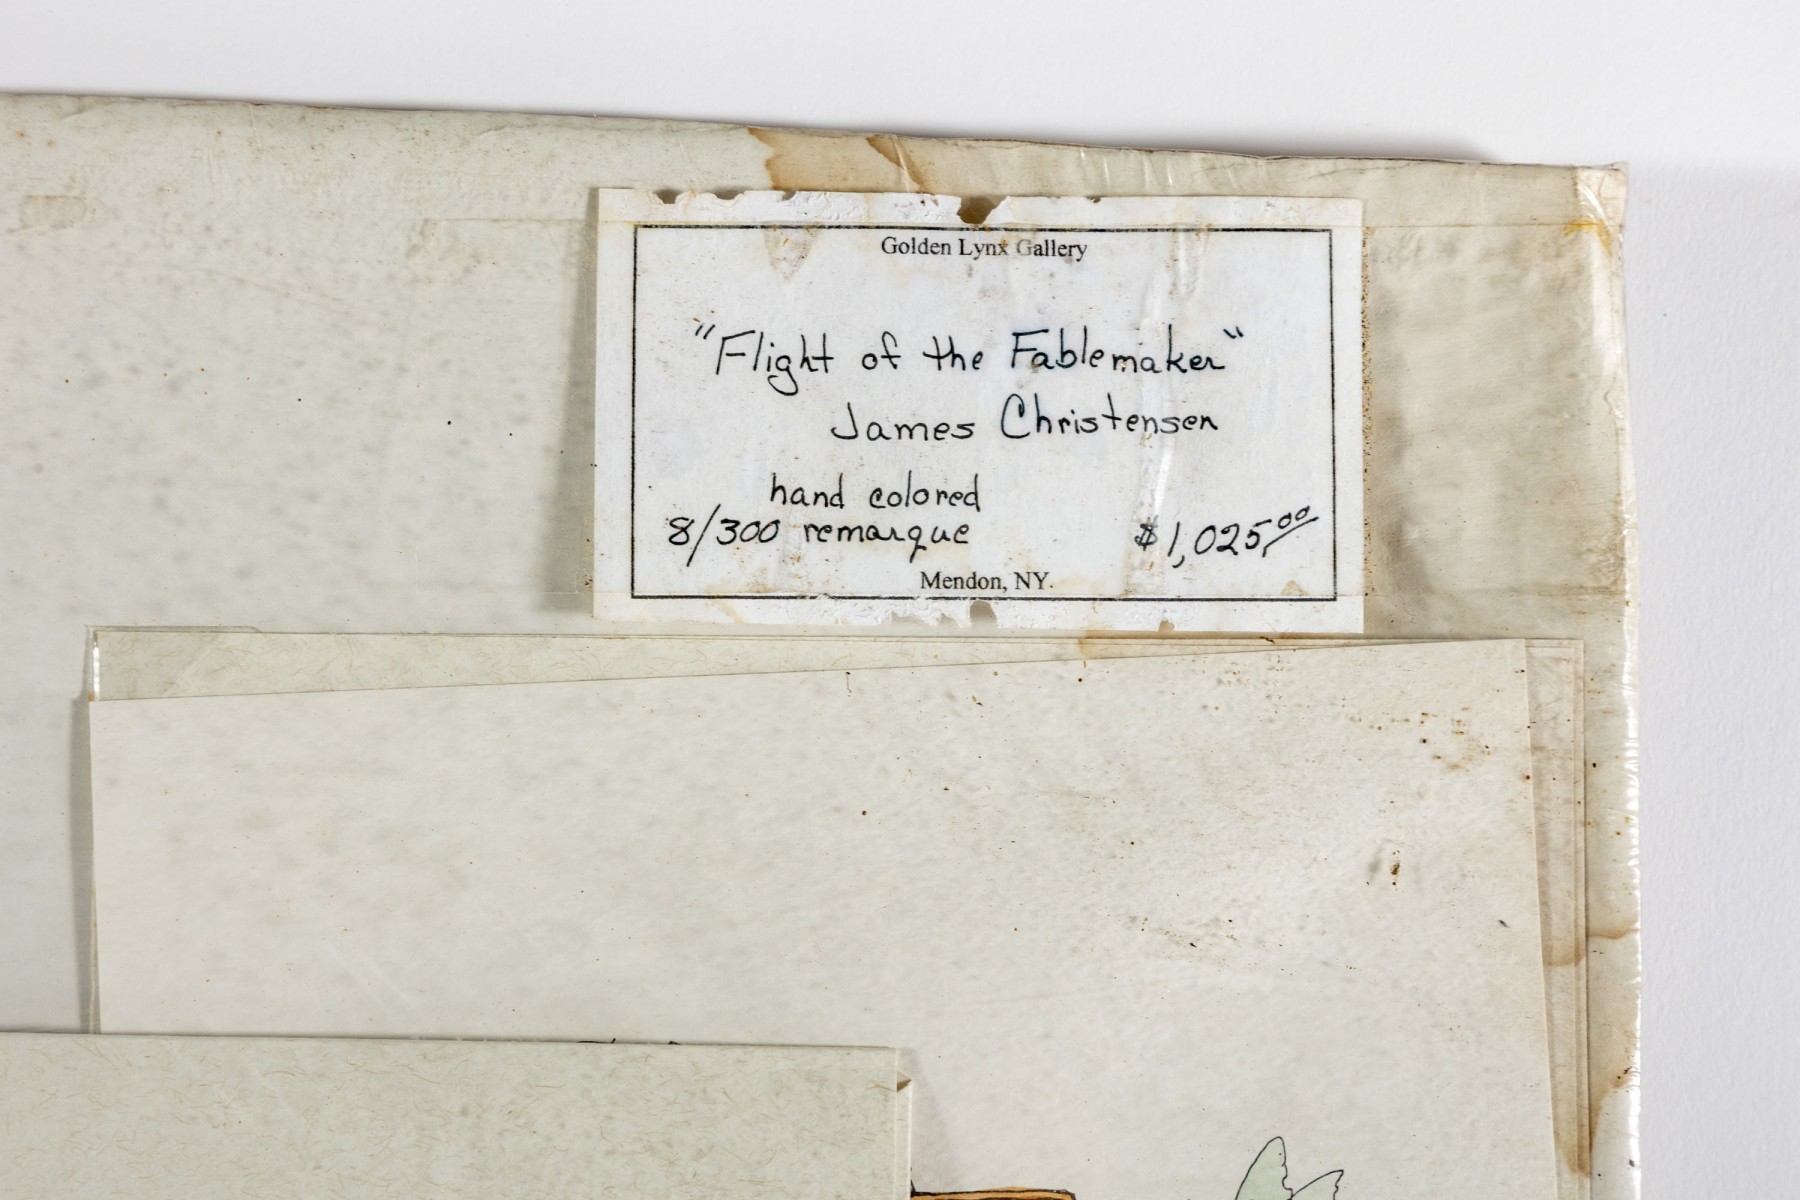 Golden Lynx Gallery
"Flight of the Fablemaker"
James Christensen
hand colored
8/300 remarque $1,025.00
Mendon, NY.